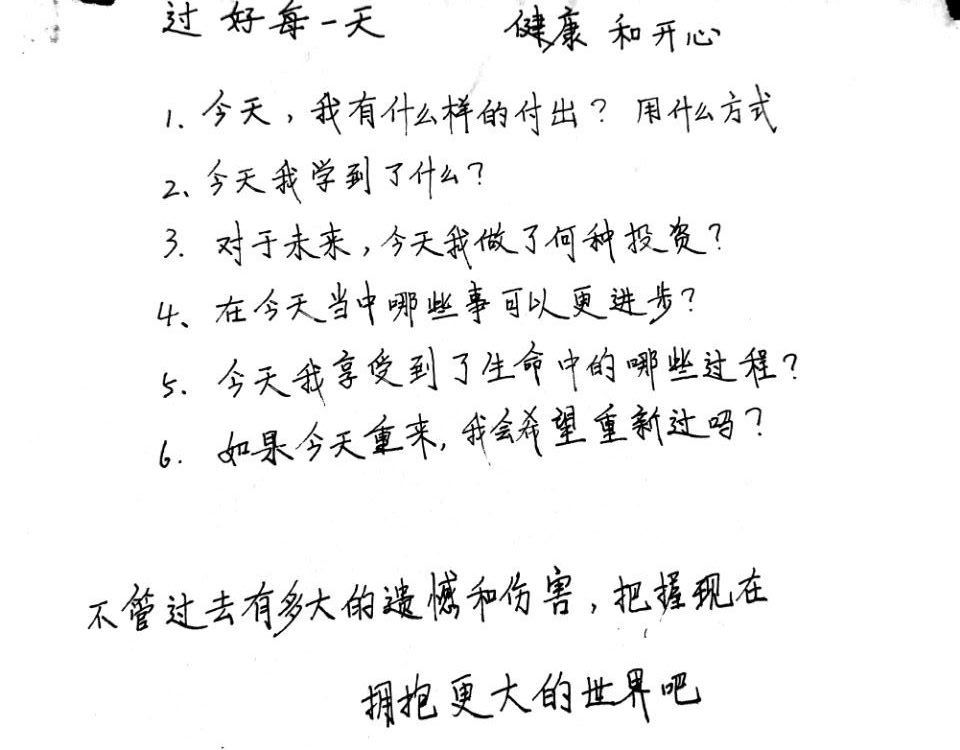 过好每一天 健康和开心
1. 今天，我有什么样的付出？用什么方式
2、今天我学到了什么？
3. 对于未来，今天我做了何种投资？
4、在今天当中哪些事可以更进步？
5. 今天我享受到了生命中的哪些过程？
6. 如果今天重来，我会希望重新过吗？
不管过去有多大的遗憾和伤害，把握现在
拥抱更大的世界吧